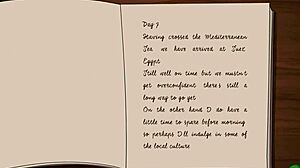 Day 7
Having crossed the Mediterranean
Sea we have arrived at Suez
Egypt
Still well on time but we mustn't
get overconfident there's still a
long way to go yet
On the other hand I do have a
little time to spare before morning
so perhaps I'll indulge in some of
the local culture